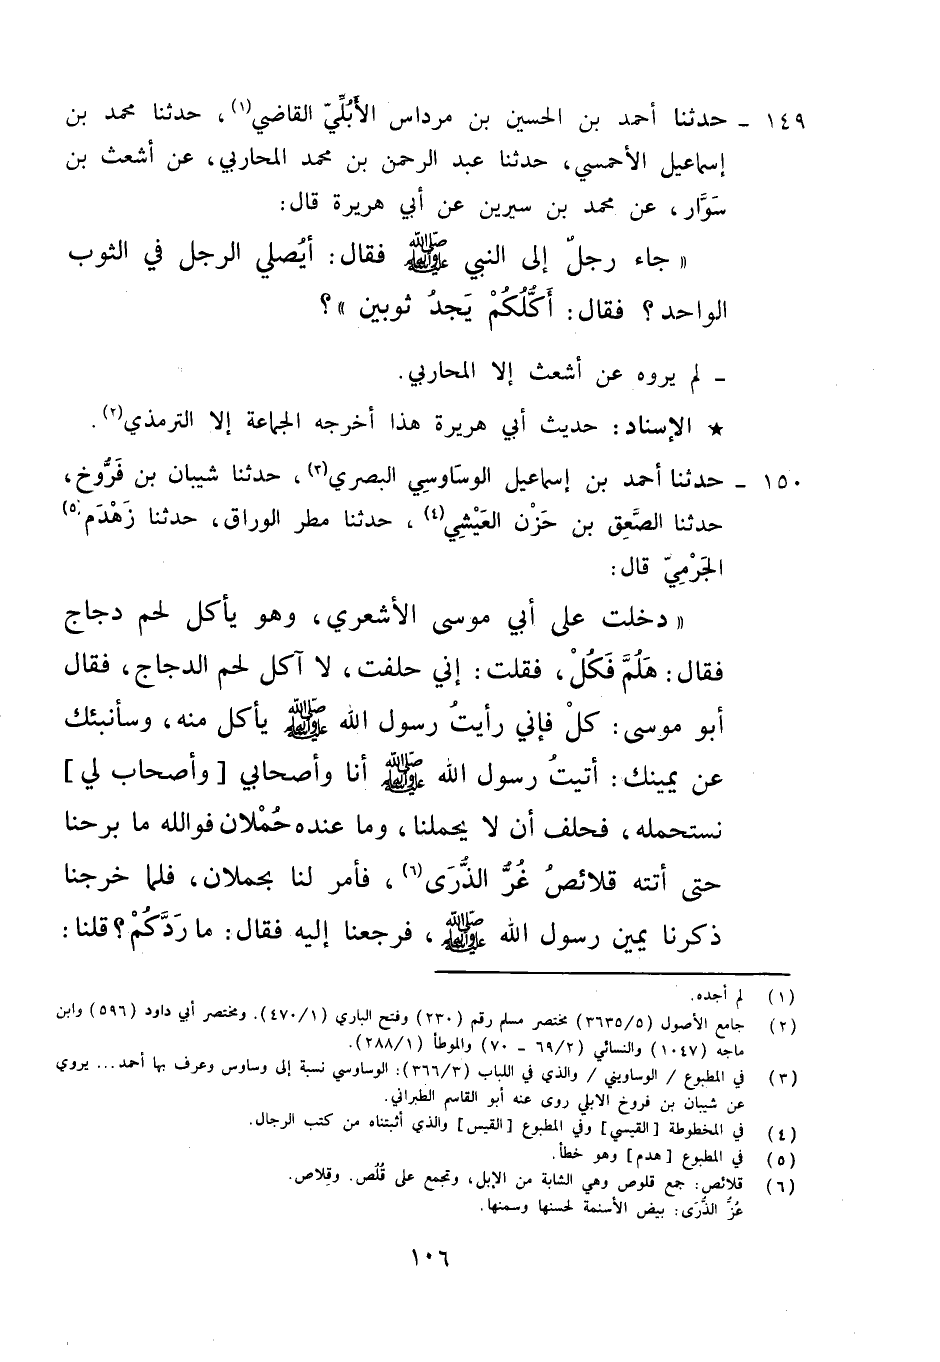 ١٤٩ - حدثنا أحمد بن الحسين بن مرداس الأُبُلِّيّ القاضي(١)، حدثنا محمد بن
إسماعيل الأحمسي، حدثنا عبد الرحمن بن محمد المحاربي، عن أشعث بن
سَوَّار، عن محمد بن سيرين عن أبي هريرة قال:
« جاء رجلٌ إلى النبي ﷺ فقال: أيُصلي الرجل في الثوب
الواحد؟ فقال: أَكُلُّكُمْ يَجدُ ثوبين »؟
- لم يروه عن أشعث إلا المحاربي.
★ الإسناد: حديث أبي هريرة هذا أخرجه الجماعة إلا الترمذي(٢).
١٥٠ - حدثنا أحمد بن إسماعيل الوسَاوسِي البصري(٣)، حدثنا شيبان بن فَرُّوخ،
حدثنا الصَّعِق بن حَزْن العَيْشِي(٤)، حدثنا مطر الوراق، حدثنا زَهْدَم(٥)
الجَرْمِيّ قال:
« دخلت على أبي موسى الأشعري، وهو يأكل لحم دجاج
فقال: هَلُمَّ فَكُلْ، فقلت: إني حلفت، لا آكل لحم الدجاج، فقال
أبو موسى: كلْ فإني رأيتُ رسول الله ﷺ يأكل منه، وسأنبئك
عن يمينك: أتيتُ رسول الله ﷺ أنا وأصحابي [وأصحاب لي]
نستحمله، فحلف أن لا يحملنا، وما عنده حُمْلان فوالله ما برحنا
حتى أتته قلائصُ غُرُّ الذُّرَى(٦)، فأمر لنا بحملان، فلما خرجنا
ذكرنا يمين رسول الله ﷺ، فرجعنا إليه فقال: ما رَدَّكُمْ؟ قلنا:
(١) لم أجده.
(٢) جامع الأصول (٣٦٣٥/٥) مختصر مسلم رقم (٢٣٠) وفتح الباري (٤٧٠/١). ومختصر أبي داود (٥٩٦) وابن
ماجه (١٠٤٧) والنسائي (٦٩/٢ - ٧٠) والموطأ (٢٨٨/١).
(٣) في المطبوع / الوساويني / والذي في اللباب (٣٦٦/٣): الوساوسي نسبة إلى وساوس وعرف بها أحمد... يروي
عن شيبان بن فروخ الابلي روى عنه أبو القاسم الطبراني.
(٤) في المخطوطة [القيسي] وفي المطبوع [القيس] والذي أثبتناه من كتب الرجال.
(٥) في المطبوع [هدم] وهو خطأ.
(٦) قلائص: جمع قلوص وهي الشابة من الإبل، وتجمع على قُلُص. وقِلاص.
غُرُّ الذُّرَى: بيض الأسنمة لحسنها وسمنها.
١٠٦